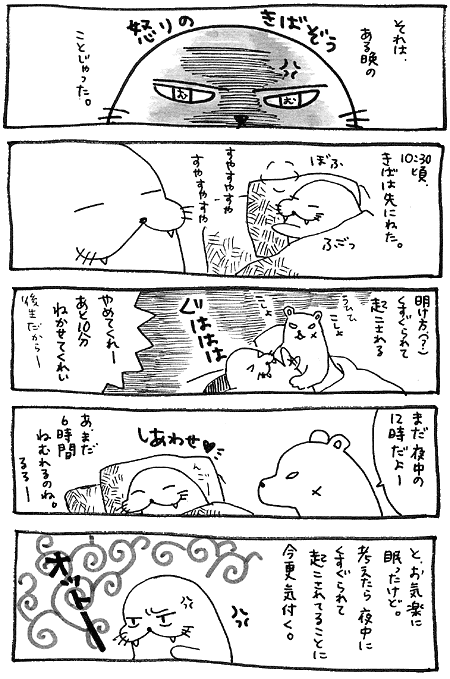 怒りの きばぞう
それは、
ある晩の
ことじゃった。
む
む
10:30頃、
きばは先にねた。
ぼふ
ふごっ
すやすやすや
すやすやすや
明け方(?)
くすぐられて
起こされる
こしょ
こしょ
ぐはははは
やめてくれー
あと10分
ねかせてくれい
後生だからー
まだ夜中の
12時だよー
しあわせ♥
あ、まだ
6時間
ねむれるのね。
るるー
と、お気楽に
眠ったけど。
考えたら夜中に
くすぐられて
起こされてることに
今更気付く。
オットー